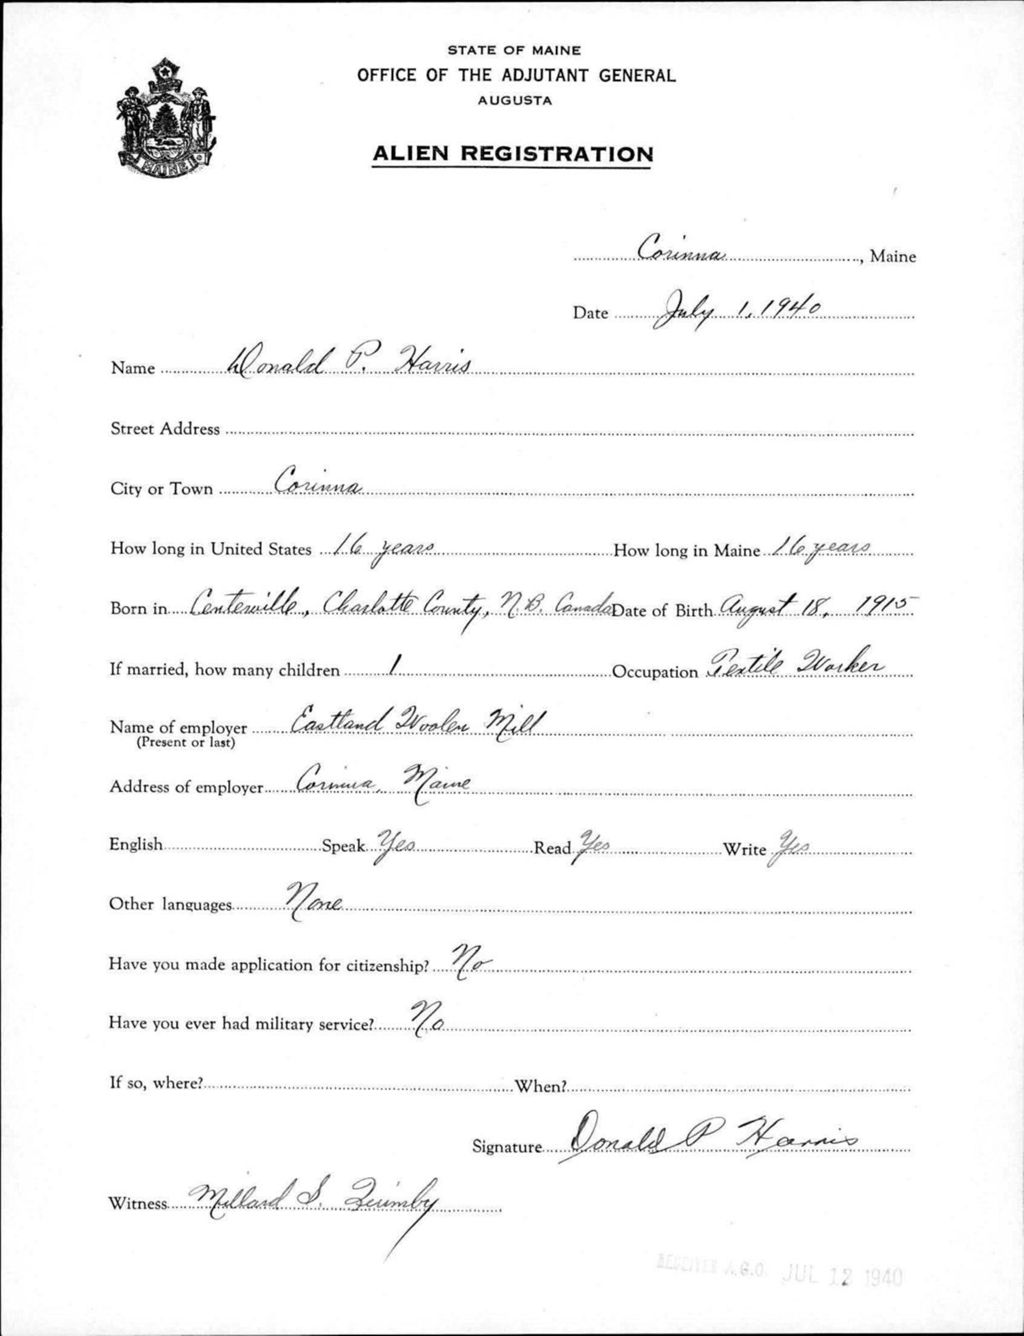 STATE OF MAINE
OFFICE OF THE ADJUTANT GENERAL
AUGUSTA
ALIEN REGISTRATION
MAINE
Corinna, Maine
Date July 1, 1940
Name Donald P. Harris
Street Address
City or Town Corinna
How long in United States 16 years How long in Maine 16 years
Born in Centerville, Charlotte County, N.B. Canada Date of Birth August 18, 1915
If married, how many children 1 Occupation Textile Worker
Name of employer Eastland Woolen Mill
(Present or last)
Address of employer Corinna, Maine
English Speak Yes Read Yes Write Yes
Other languages None
Have you made application for citizenship? No
Have you ever had military service? No
If so, where? When?
Signature Donald P Harris
Witness Millard S. Quimby
RECEIVED A.G.O. JUL 12 1940